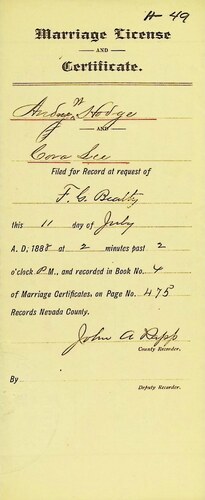 H-49
Marriage License
AND
Certificate.
Andw Hodge
AND
Cora Lee
Filed for Record at request of
F. C. Beatty
this 11 day of July
A. D. 1888 at 2 minutes past 2
o'clock P.M., and recorded in Book No. 4
of Marriage Certificates, on Page No. 475
Records Nevada County.
John A Rapp
County Recorder.
By
Deputy Recorder.